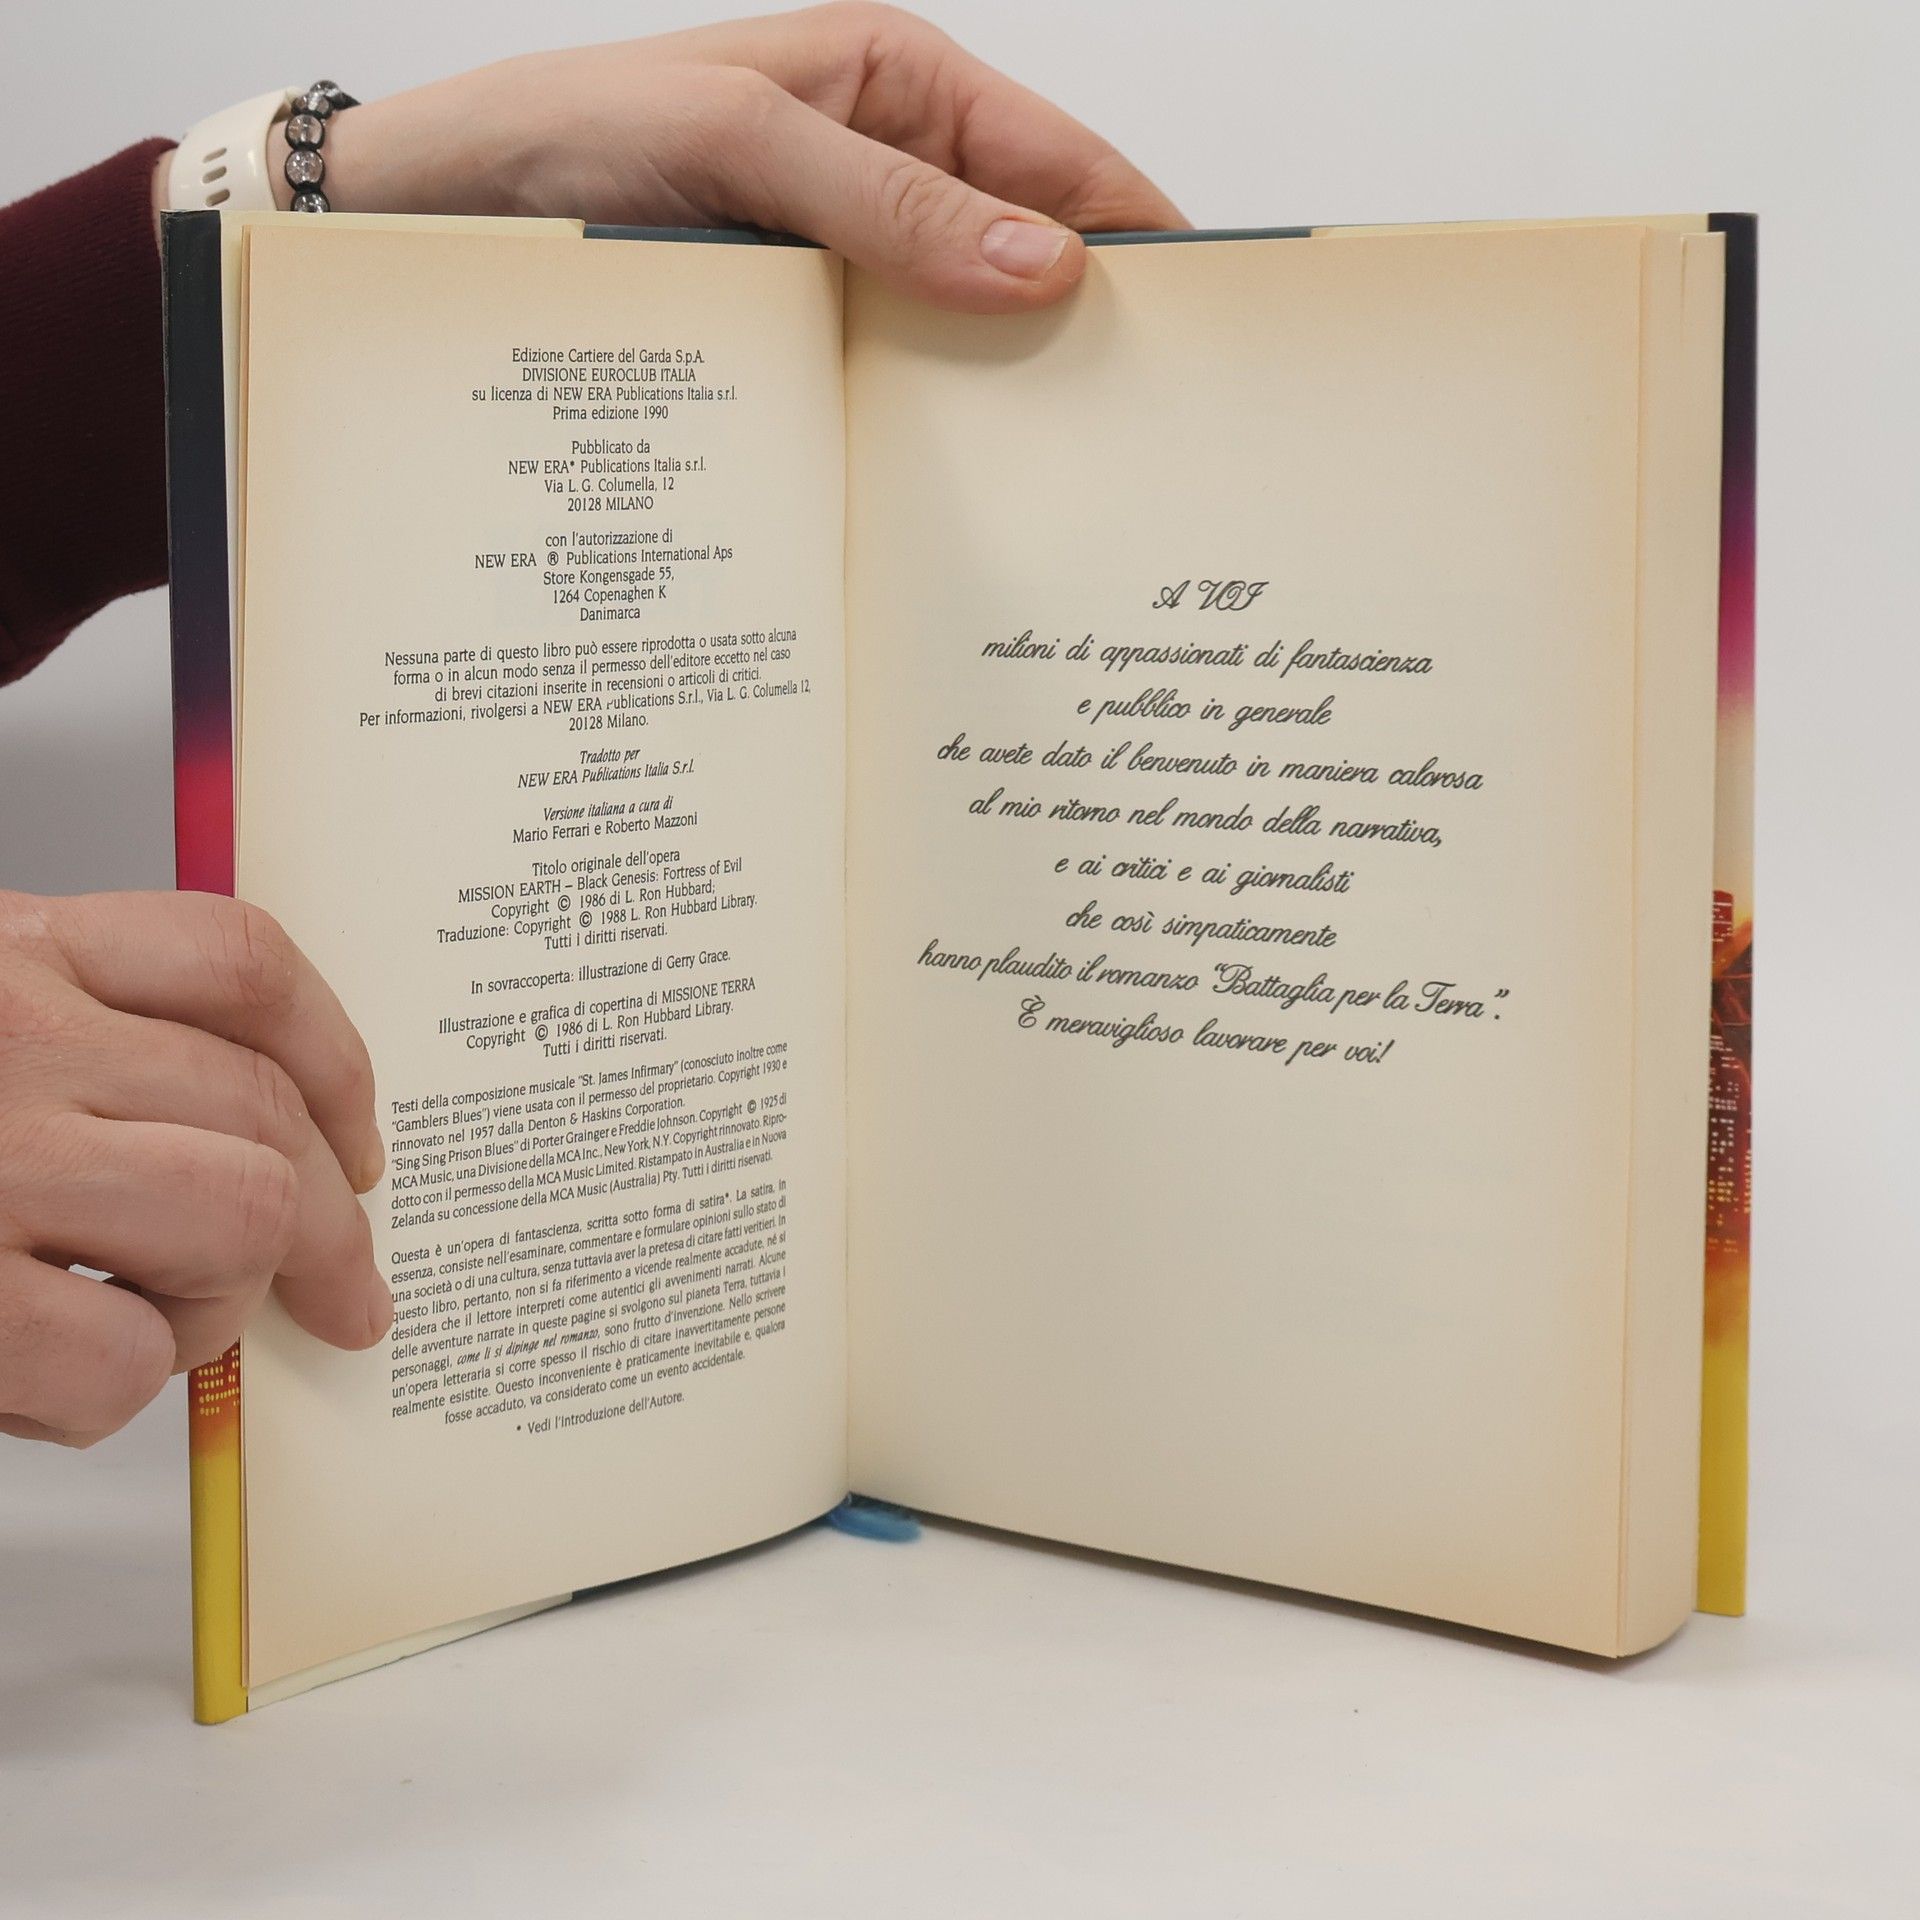 Edizione Cartiere del Garda S.p.A.
DIVISIONE EUROCLUB ITALIA
su licenza di NEW ERA Publications Italia s.r.l.
Prima edizione 1990
Pubblicato da
NEW ERA* Publications Italia s.r.l.
Via L. G. Columella, 12
20128 MILANO
con l'autorizzazione di
NEW ERA ® Publications International Aps
Store Kongensgade 55,
1264 Copenaghen K
Danimarca
Nessuna parte di questo libro può essere riprodotta o usata sotto alcuna
forma o in alcun modo senza il permesso dell'editore eccetto nel caso
di brevi citazioni inserite in recensioni o articoli di critici.
Per informazioni, rivolgersi a NEW ERA Publications S.r.l., Via L. G. Columella 12,
20128 Milano.
Tradotto per
NEW ERA Publications Italia S.r.l.
Versione italiana a cura di
Mario Ferrari e Roberto Mazzoni
Titolo originale dell'opera
MISSION EARTH – Black Genesis: Fortress of Evil
Copyright © 1986 di L. Ron Hubbard;
Traduzione: Copyright © 1988 L. Ron Hubbard Library.
Tutti i diritti riservati.
In sovraccoperta: illustrazione di Gerry Grace.
Illustrazione e grafica di copertina di MISSIONE TERRA
Copyright © 1986 di L. Ron Hubbard Library.
Tutti i diritti riservati.
Testi della composizione musicale "St. James Infirmary" (conosciuto inoltre come
"Gamblers Blues") viene usata con il permesso del proprietario. Copyright 1930 e
rinnovato nel 1957 dalla Denton & Haskins Corporation.
"Sing Sing Prison Blues" di Porter Grainger e Freddie Johnson. Copyright © 1925 di
MCA Music, una Divisione della MCA Inc., New York, N.Y. Copyright rinnovato. Ripro-
dotto con il permesso della MCA Music Limited. Ristampato in Australia e in Nuova
Zelanda su concessione della MCA Music (Australia) Pty. Tutti i diritti riservati.
Questa è un'opera di fantascienza, scritta sotto forma di satira*. La satira, in
essenza, consiste nell'esaminare, commentare e formulare opinioni sullo stato di
una società o di una cultura, senza tuttavia aver la pretesa di citare fatti veritieri. In
questo libro, pertanto, non si fa riferimento a vicende realmente accadute, né si
desidera che il lettore interpreti come autentici gli avvenimenti narrati. Alcune
delle avventure narrate in queste pagine si svolgono sul pianeta Terra, tuttavia i
personaggi, come li si dipinge nel romanzo, sono frutto d'invenzione. Nello scrivere
un'opera letteraria si corre spesso il rischio di citare inavvertitamente persone
realmente esistite. Questo inconveniente è praticamente inevitabile e, qualora
fosse accaduto, va considerato come un evento accidentale.
* Vedi l'Introduzione dell'Autore.
A VOI
milioni di appassionati di fantascienza
e pubblico in generale
che avete dato il benvenuto in maniera calorosa
al mio ritorno nel mondo della narrativa,
e ai critici e ai giornalisti
che così simpaticamente
hanno plaudito il romanzo "Battaglia per la Terra".
È meraviglioso lavorare per voi!